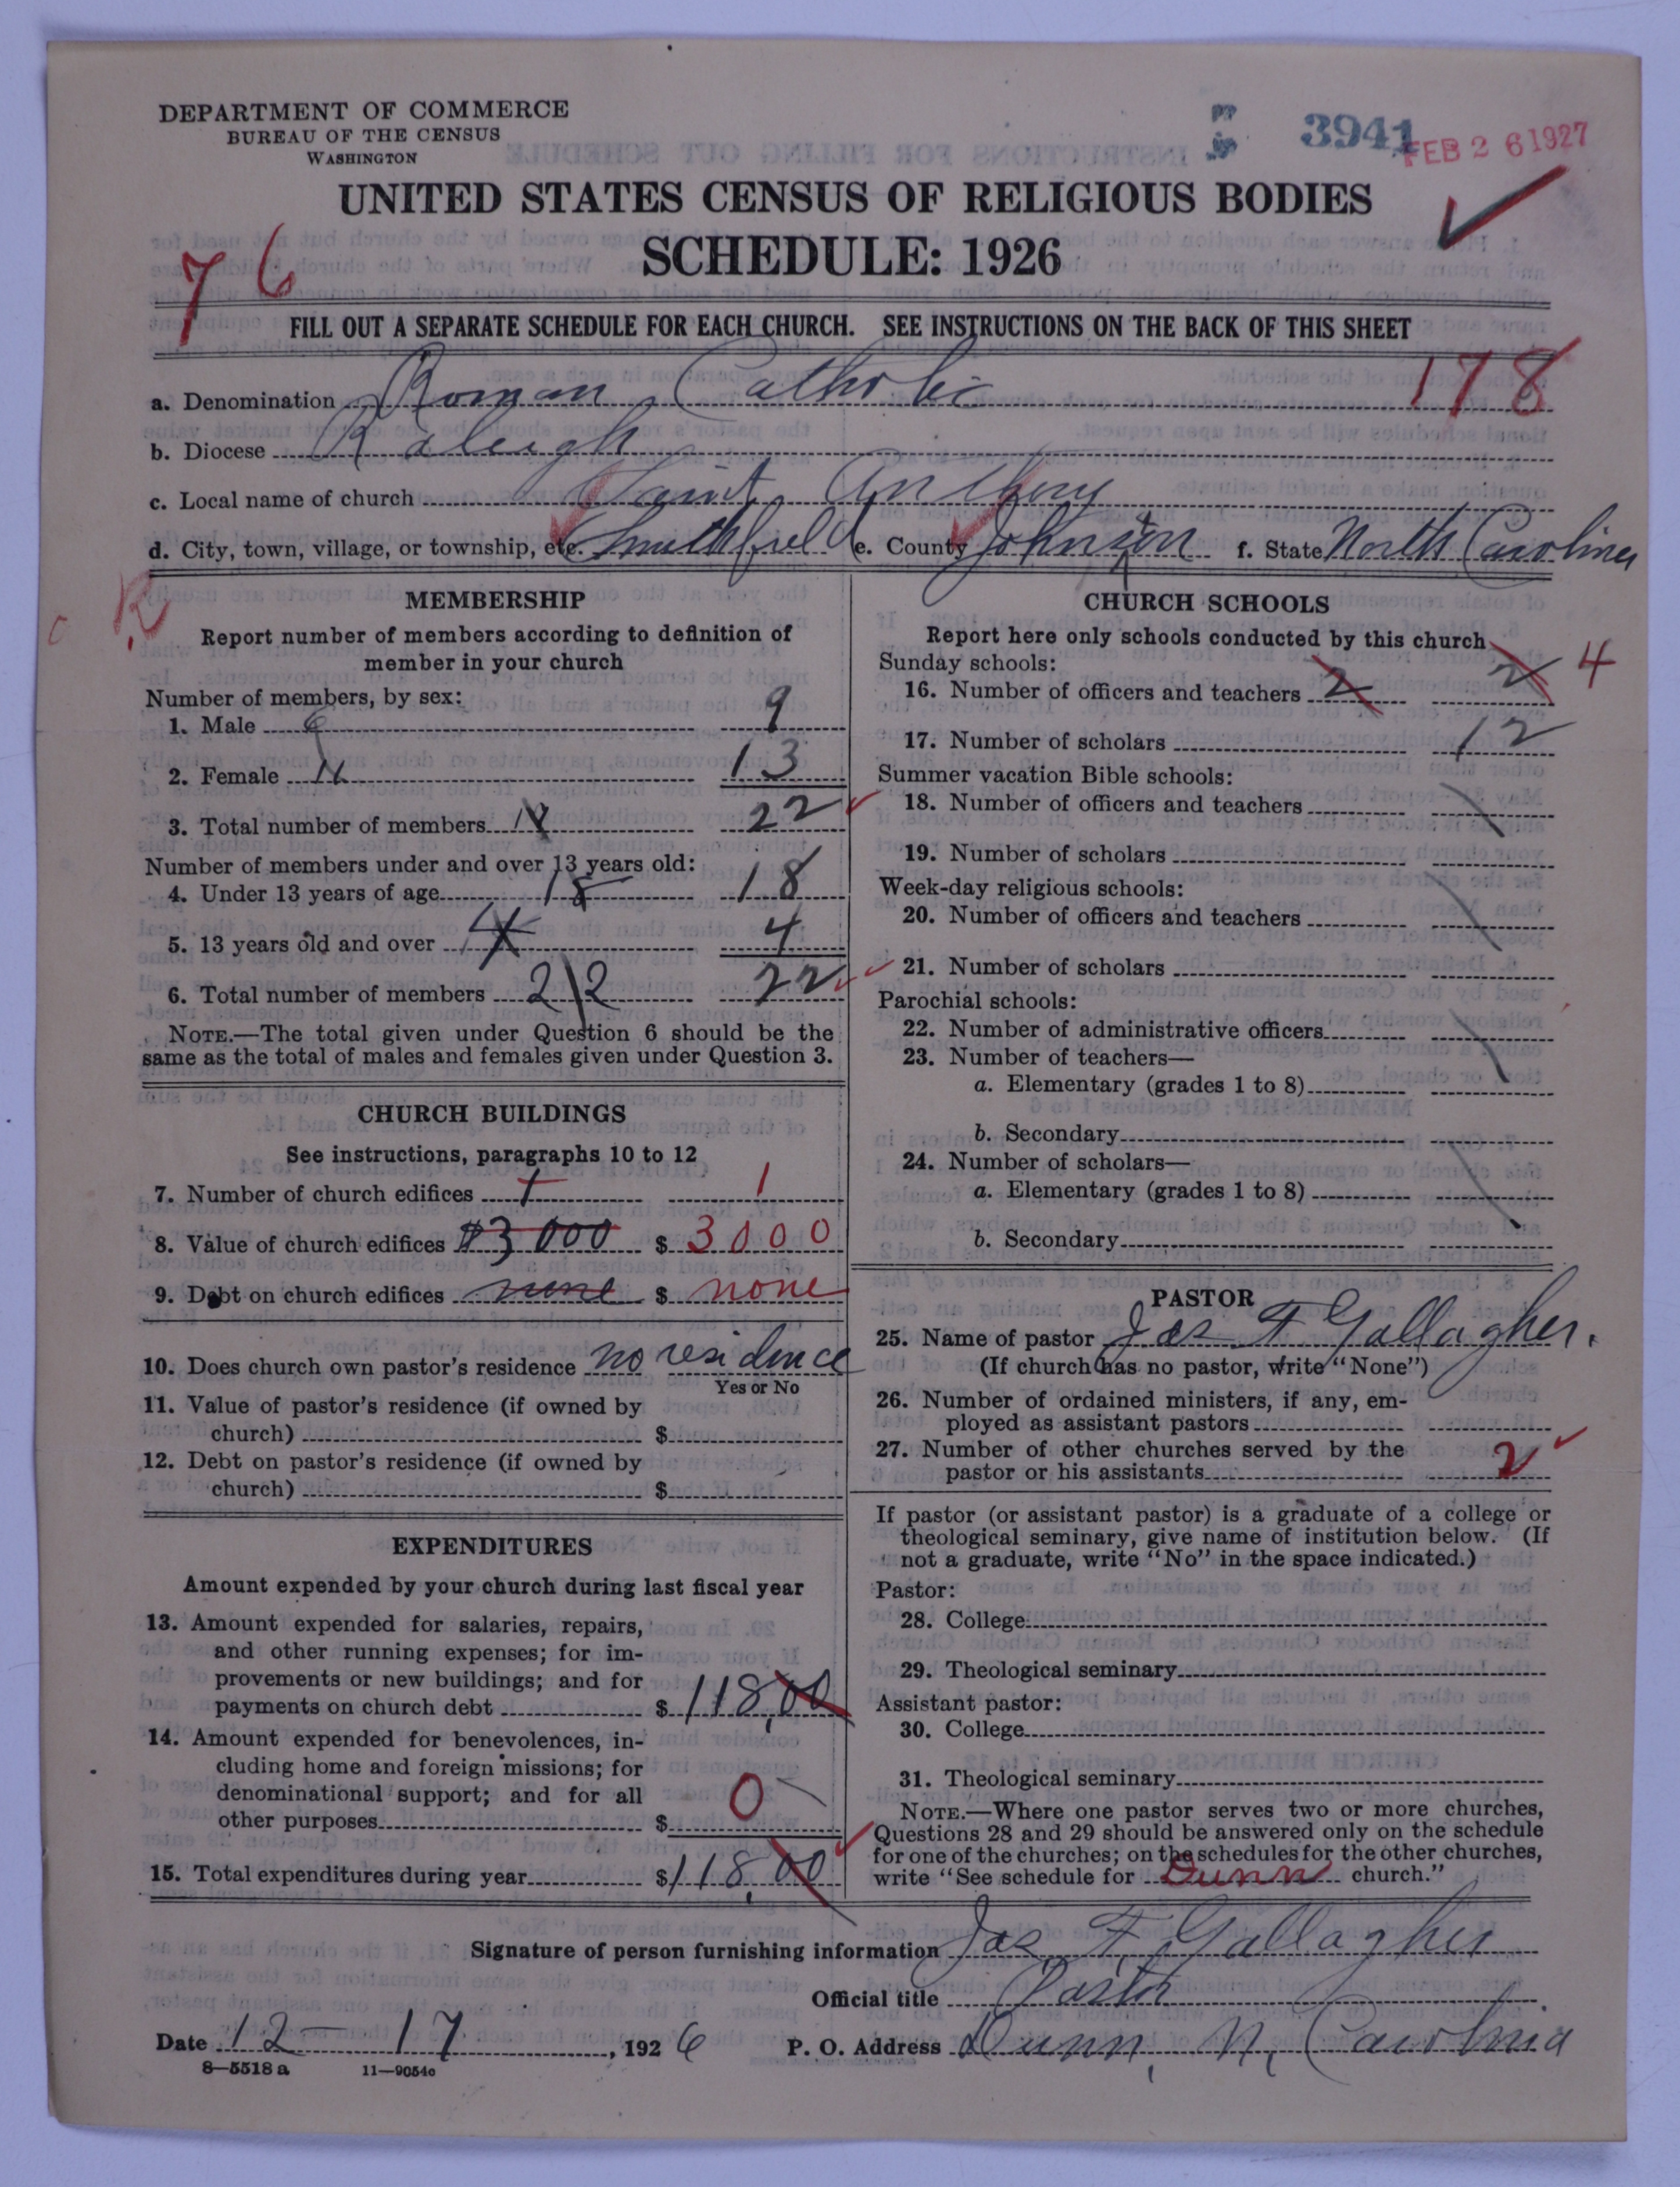 DEPARTMENT OF COMMERCE
BUREAU OF THE CENSUS
WASHINGTON
3941
FEB 26 1927
UNITED STATES CENSUS OF RELIGIOUS BODIES
SCHEDULE: 1926
76
FILL OUT A SEPARATE SCHEDULE FOR EACH CHURCH. SEE INSTRUCTIONS ON THE BACK OF THIS SHEET
178
a. Denomination Roman Catholic
b. Diocese Raleigh
c. Local name of church Saint Anthony
d. City, town, village, or township, etc. Smithfield e. County Johnston f. State North Carolina
R
MEMBERSHIP
Report number of members according to definition of
member in your church
Number of members, by sex:
1. Male 9
2. Female 13
3. Total number of members 22
Number of members under and over 13 years old:
4. Under 13 years of age 18
5. 13 years old and over 4
6. Total number of members 22 22
NOTE.—The total given under Question 6 should be the
same as the total of males and females given under Question 3.
CHURCH BUILDINGS
See instructions, paragraphs 10 to 12
7. Number of church edifices 1 1
8. Value of church edifices $3000 $ 3000
9. Debt on church edifices none $ none
10. Does church own pastor's residence no residence
Yes or No
11. Value of pastor's residence (if owned by
church) $
12. Debt on pastor's residence (if owned by
church) $
EXPENDITURES
Amount expended by your church during last fiscal year
13. Amount expended for salaries, repairs,
and other running expenses; for im-
provements or new buildings; and for
payments on church debt $ 118,00
14. Amount expended for benevolences, in-
cluding home and foreign missions; for
denominational support; and for all
other purposes $ 0
15. Total expenditures during year $ 118,00
CHURCH SCHOOLS
Report here only schools conducted by this church
Sunday schools:
16. Number of officers and teachers 2 2 4
17. Number of scholars 12
Summer vacation Bible schools:
18. Number of officers and teachers
19. Number of scholars
Week-day religious schools:
20. Number of officers and teachers
21. Number of scholars
Parochial schools:
22. Number of administrative officers
23. Number of teachers—
a. Elementary (grades 1 to 8)
b. Secondary
24. Number of scholars—
a. Elementary (grades 1 to 8)
b. Secondary
PASTOR
25. Name of pastor Jas F Gallagher.
(If church has no pastor, write "None")
26. Number of ordained ministers, if any, em-
ployed as assistant pastors
27. Number of other churches served by the
pastor or his assistants 2
If pastor (or assistant pastor) is a graduate of a college or
theological seminary, give name of institution below. (If
not a graduate, write "No" in the space indicated.)
Pastor:
28. College
29. Theological seminary
Assistant pastor:
30. College
31. Theological seminary
NOTE.—Where one pastor serves two or more churches,
Questions 28 and 29 should be answered only on the schedule
for one of the churches; on the schedules for the other churches,
write "See schedule for Dunn church."
Signature of person furnishing information Jas. F. Gallagher
Official title Pastor
Date 12-17, 1926 P. O. Address Dunn, N, Carolina
8—5518 a 11—9054c